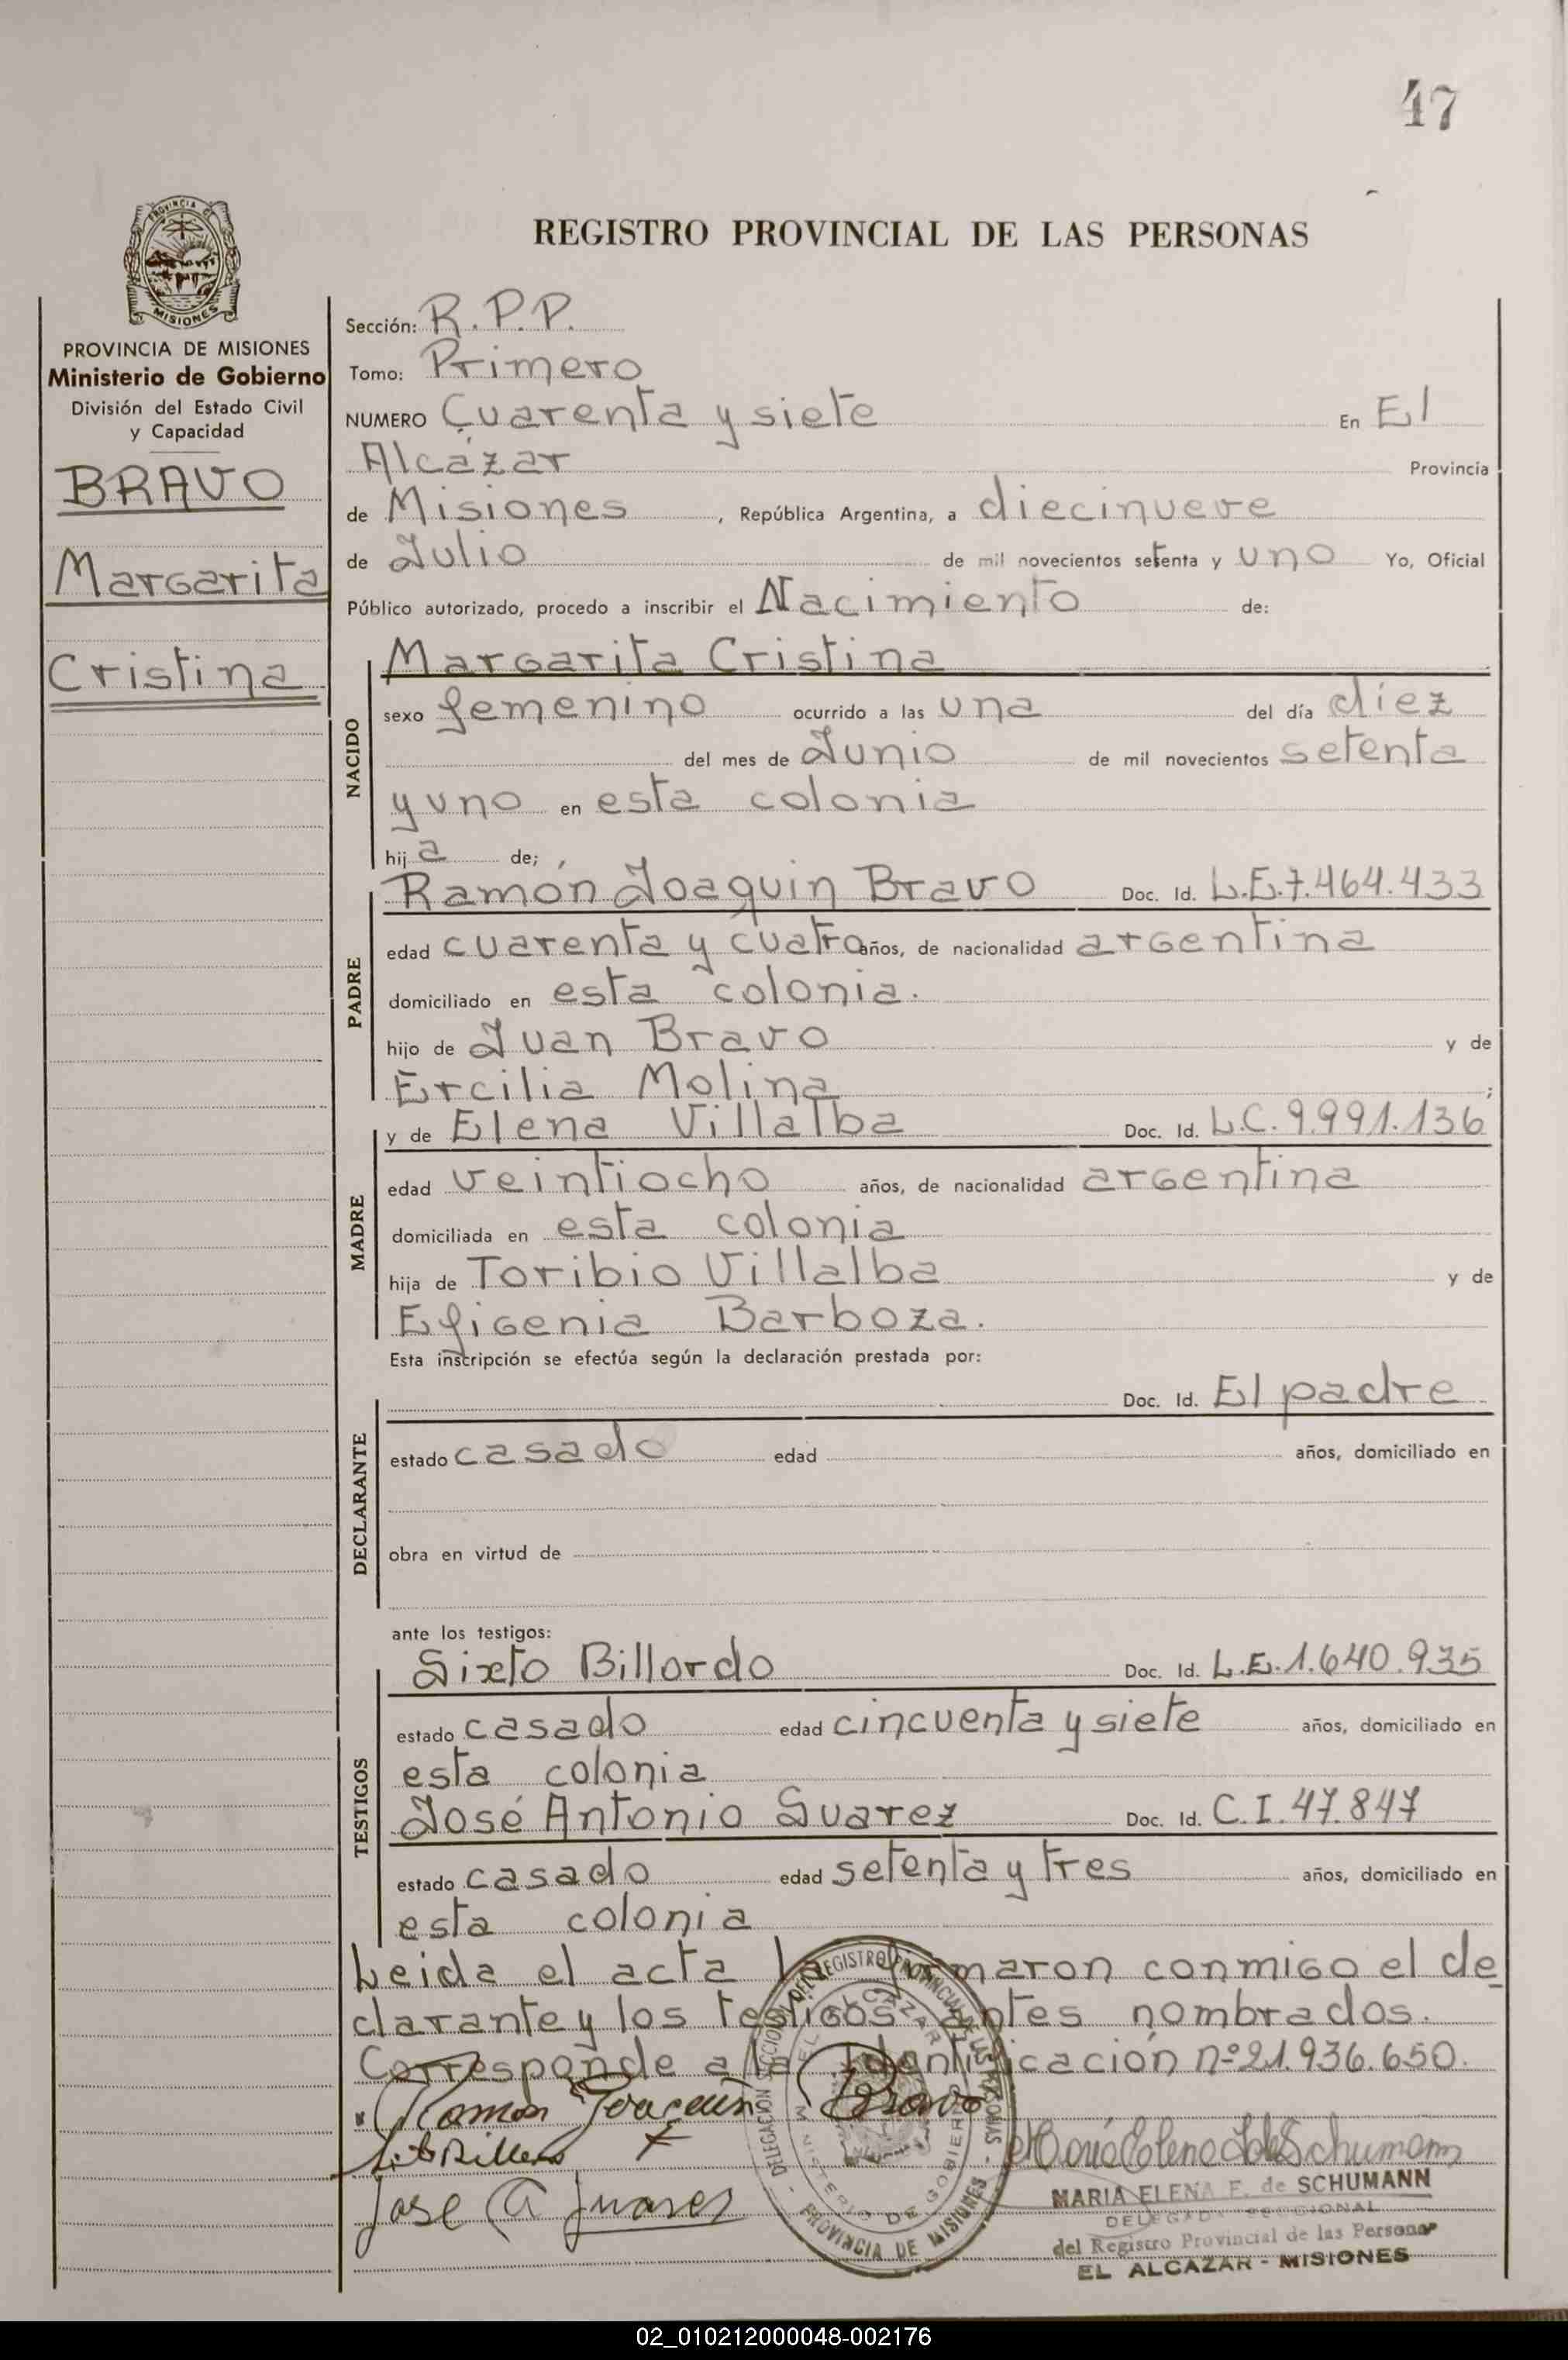 47
REGISTRO PROVINCIAL DE LAS PERSONAS
PROVINCIA DE MISIONES
Ministerio de Gobierno
División del Estado Civil
y Capacidad
BRAVO
Margarita
Cristina
Sección: R.P.P.
Tomo: Primero
NUMERO Cuarenta y siete En El
Alcázar Provincia
de Misiones, República Argentina, a diecinueve
de Julio de mil novecientos setenta y uno Yo, Oficial
Público autorizado, procedo a inscribir el Nacimiento de:
NACIDO
Margarita Cristina
sexo femenino ocurrido a las una del día diez
del mes de Junio de mil novecientos setenta
y uno en esta colonia
hij a de;
PADRE
Ramón Joaquin Bravo Doc. Id. L.E.7.464.433
edad cuarenta y cuatro años, de nacionalidad argentina
domiciliado en esta colonia.
hijo de Juan Bravo y de
Ercilia Molina;
MADRE
y de Elena Villalba Doc. Id. L.C.9.991.136
edad veintiocho años, de nacionalidad argentina
domiciliada en esta colonia
hija de Toribio Villalba y de
Efigenia Barboza.
Esta inscripción se efectúa según la declaración prestada por:
DECLARANTE
Doc. Id. El padre
estado casado edad años, domiciliado en
obra en virtud de
ante los testigos:
TESTIGOS
Sixto Billordo Doc. Id. L.E.1.640.935
estado casado edad cincuenta y siete años, domiciliado en
esta colonia
José Antonio Suarez Doc. Id. C.I.47.847
estado casado edad setenta y tres años, domiciliado en
esta colonia
Leida el acta la firmaron conmigo el de
clarante y los testigos antes nombrados.
Corresponde a la Identificación nº21.936.650.
Ramon Joaquin Bravo
Jose A Juares
MARIA ELENA F. de SCHUMANN
del Registro Provincial de las Personas
EL ALCAZAR - MISIONES
PROVINCIA DE MISIONES
MINISTERIO DE GOBIERNO
EL ALCAZAR
02_010212000048-002176